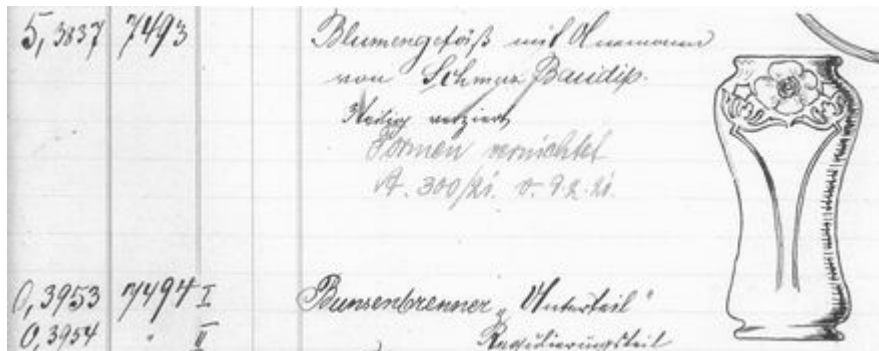 5, 3837 7493 Blumengefäß mit Anemonen
von Schmuz Baudiß.
3teilig verziert
Formen vernichtet
A. 300/21. v. 9.2.21.
0, 3953 7494 I Bunsenbrenner „Unterteil"
0, 3954 " II Regulierungsteil